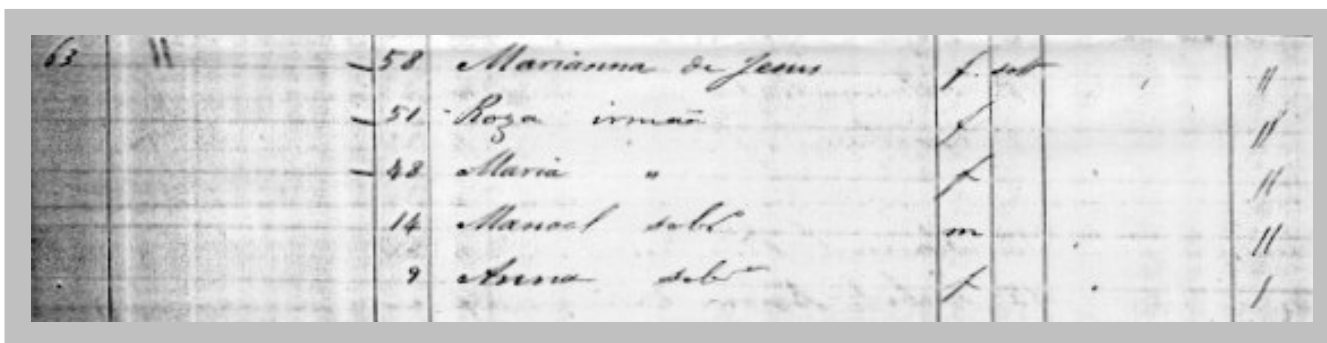 63 " 58 Marianna de Jesus f. solt "
51 Roza irmaã f "
48 Maria " f "
14 Manoel sobr m "
9 Anna sobr f "